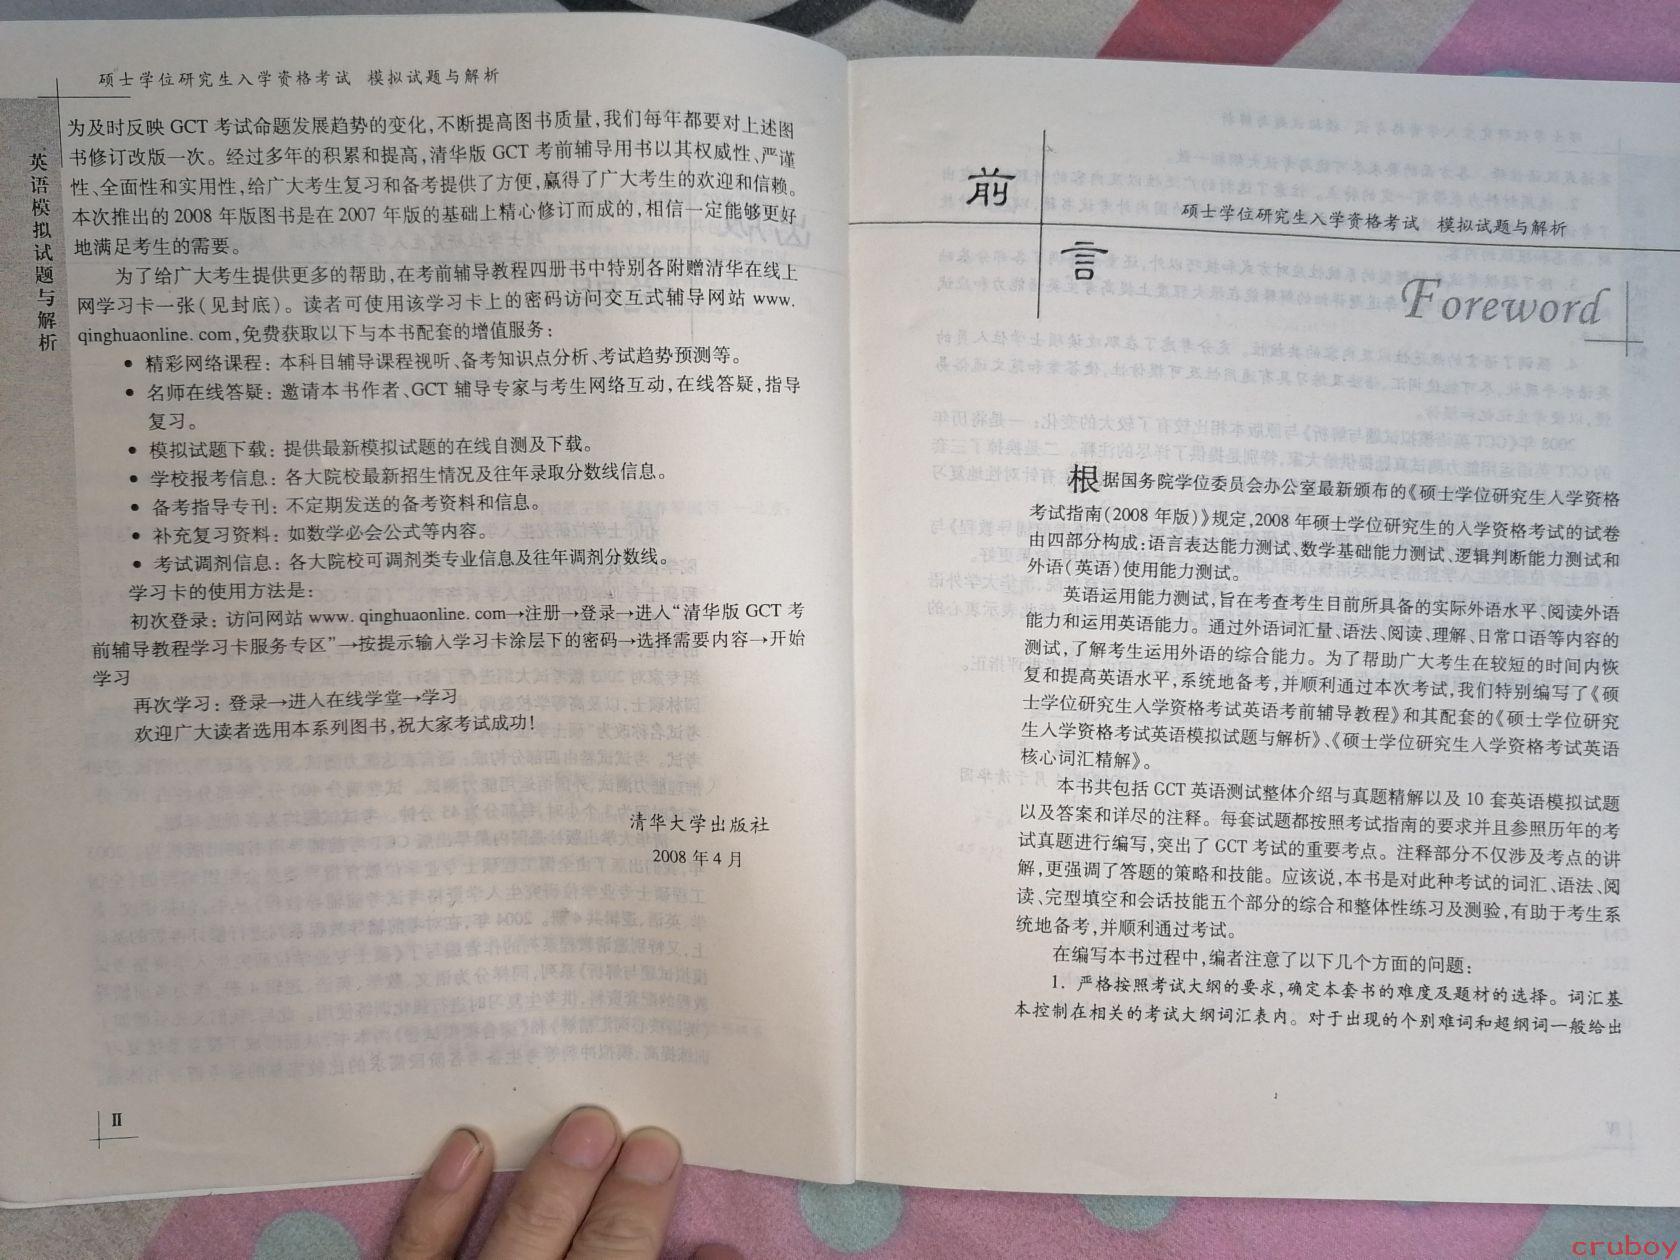 硕士学位研究生入学资格考试 模拟试题与解析
英语模拟试题与解析
为及时反映 GCT 考试命题发展趋势的变化,不断提高图书质量,我们每年都要对上述图
书修订改版一次。经过多年的积累和提高,清华版 GCT 考前辅导用书以其权威性、严谨
性、全面性和实用性,给广大考生复习和备考提供了方便,赢得了广大考生的欢迎和信赖。
本次推出的 2008 年版图书是在 2007 年版的基础上精心修订而成的,相信一定能够更好
地满足考生的需要。
为了给广大考生提供更多的帮助,在考前辅导教程四册书中特别各附赠清华在线上
网学习卡一张(见封底)。读者可使用该学习卡上的密码访问交互式辅导网站 www.
qinghuaonline. com,免费获取以下与本书配套的增值服务:
• 精彩网络课程: 本科目辅导课程视听、备考知识点分析、考试趋势预测等。
• 名师在线答疑: 邀请本书作者、GCT 辅导专家与考生网络互动,在线答疑,指导
复习。
• 模拟试题下载: 提供最新模拟试题的在线自测及下载。
• 学校报考信息: 各大院校最新招生情况及往年录取分数线信息。
• 备考指导专刊: 不定期发送的备考资料和信息。
• 补充复习资料: 如数学必会公式等内容。
• 考试调剂信息: 各大院校可调剂类专业信息及往年调剂分数线。
学习卡的使用方法是:
初次登录: 访问网站 www. qinghuaonline. com→注册→登录→进入“清华版 GCT 考
前辅导教程学习卡服务专区”→按提示输入学习卡涂层下的密码→选择需要内容→开始
学习
再次学习: 登录→进入在线学堂→学习
欢迎广大读者选用本系列图书,祝大家考试成功!
清华大学出版社
2008 年 4 月
II
前
言
硕士学位研究生入学资格考试 模拟试题与解析
Foreword
根据国务院学位委员会办公室最新颁布的《硕士学位研究生入学资格
考试指南(2008 年版)》规定,2008 年硕士学位研究生的入学资格考试的试卷
由四部分构成:语言表达能力测试、数学基础能力测试、逻辑判断能力测试和
外语(英语)使用能力测试。
英语运用能力测试,旨在考查考生目前所具备的实际外语水平、阅读外语
能力和运用英语能力。通过外语词汇量、语法、阅读、理解、日常口语等内容的
测试,了解考生运用外语的综合能力。为了帮助广大考生在较短的时间内恢
复和提高英语水平,系统地备考,并顺利通过本次考试,我们特别编写了《硕
士学位研究生入学资格考试英语考前辅导教程》和其配套的《硕士学位研究
生入学资格考试英语模拟试题与解析》、《硕士学位研究生入学资格考试英语
核心词汇精解》。
本书共包括 GCT 英语测试整体介绍与真题精解以及 10 套英语模拟试题
以及答案和详尽的注释。每套试题都按照考试指南的要求并且参照历年的考
试真题进行编写,突出了 GCT 考试的重要考点。注释部分不仅涉及考点的讲
解,更强调了答题的策略和技能。应该说,本书是对此种考试的词汇、语法、阅
读、完型填空和会话技能五个部分的综合和整体性练习及测验,有助于考生系
统地备考,并顺利通过考试。
在编写本书过程中,编者注意了以下几个方面的问题:
1. 严格按照考试大纲的要求,确定本套书的难度及题材的选择。词汇基
本控制在相关的考试大纲词汇表内。对于出现的个别难词和超纲词一般给出
cruboy